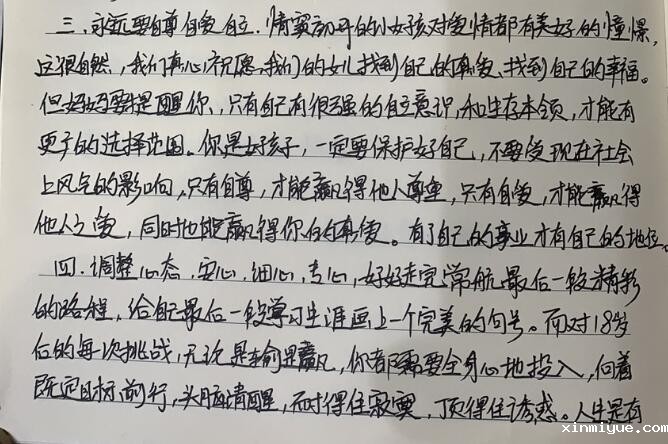 三.永远要自尊自爱自立.情窦初开的小女孩对爱情都有美好的憧憬,
这很自然,我们真心祝愿、我们的女儿找到自己的真爱、找到自己的幸福。
但妈妈要提醒你,只有自己有很强的自立意识,和生存本领,才能有
更多的选择范围。你是女孩子,一定要保护好自己,不要受现在社会
上风气的影响,只有自尊,才能赢得他人尊重,只有自爱,才能赢得
他人之爱,同时也能赢得你的真爱。有了自己的事业才有自己的地位。
四.调整心态,安心,细心,专心,好好走完学航最后一段精彩
的路程,给自己最后一段学习生涯画上一个完美的句号。面对18岁
后的每次挑战,无论是输是赢,你都需要全身心地投入,向着
既定目标前行,头脑清醒,耐得住寂寞,顶得住诱惑。人生是有
xinmiyue.com